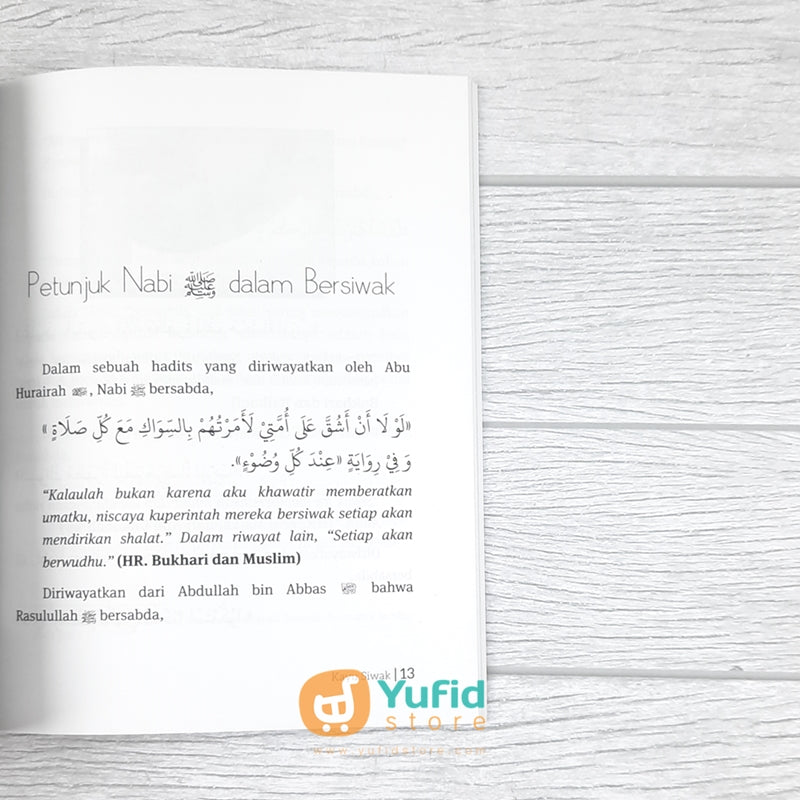 Petunjuk Nabi ﷺ dalam Bersiwak
Dalam sebuah hadits yang diriwayatkan oleh Abu
Hurairah , Nabi ﷺ bersabda,
«لَوْ لَا أَنْ أَشُقَّ عَلَى أُمَّتِيْ لَأَمَرْتُهُمْ بِالسِّوَاكِ مَعَ كُلِّ صَلَاةٍ»
وَ فِيْ رِوَايَةٍ «عِنْدَ كُلِّ وُضُوْءٍ».
“Kalaulah bukan karena aku khawatir memberatkan
umatku, niscaya kuperintah mereka bersiwak setiap akan
mendirikan shalat.” Dalam riwayat lain, “Setiap akan
berwudhu.” (HR. Bukhari dan Muslim)
Diriwayatkan dari Abdullah bin Abbas bahwa
Rasulullah ﷺ bersabda,
Siwak | 13
Yufid
store
www.yufidstore.com